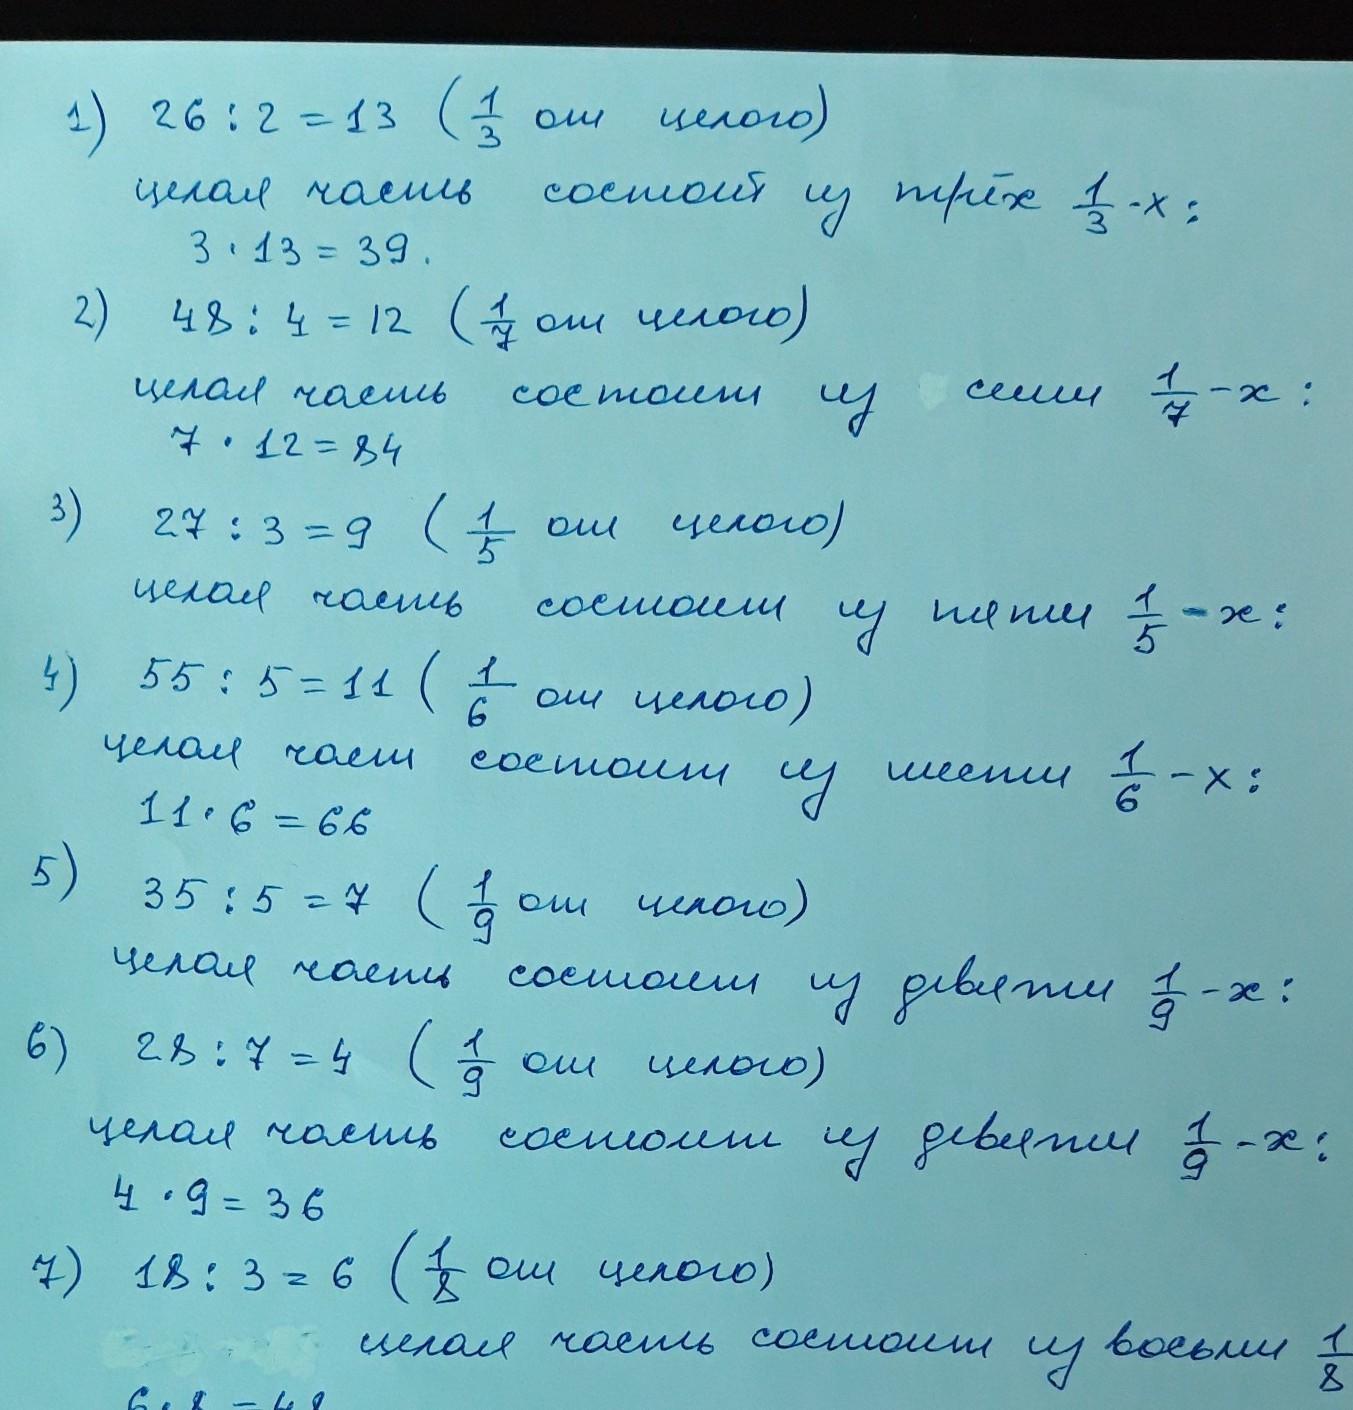 1) 26 : 2 = 13 (1/3 от целого)
целая часть состоит из трёх 1/3-х:
3 · 13 = 39.
2) 48 : 4 = 12 (1/7 от целого)
целая часть состоит из семи 1/7-х:
7 · 12 = 84
3) 27 : 3 = 9 (1/5 от целого)
целая часть состоит из пяти 1/5-х:
4) 55 : 5 = 11 (1/6 от целого)
целая част состоит из шести 1/6-х:
11 · 6 = 66
5) 35 : 5 = 7 (1/9 от целого)
целая часть состоит из девяти 1/9-х:
6) 28 : 7 = 4 (1/9 от целого)
целая часть состоит из девяти 1/9-х:
4 · 9 = 36
7) 18 : 3 = 6 (1/8 от целого)
целая часть состоит из восьми 1/8
6 · 8 = 48